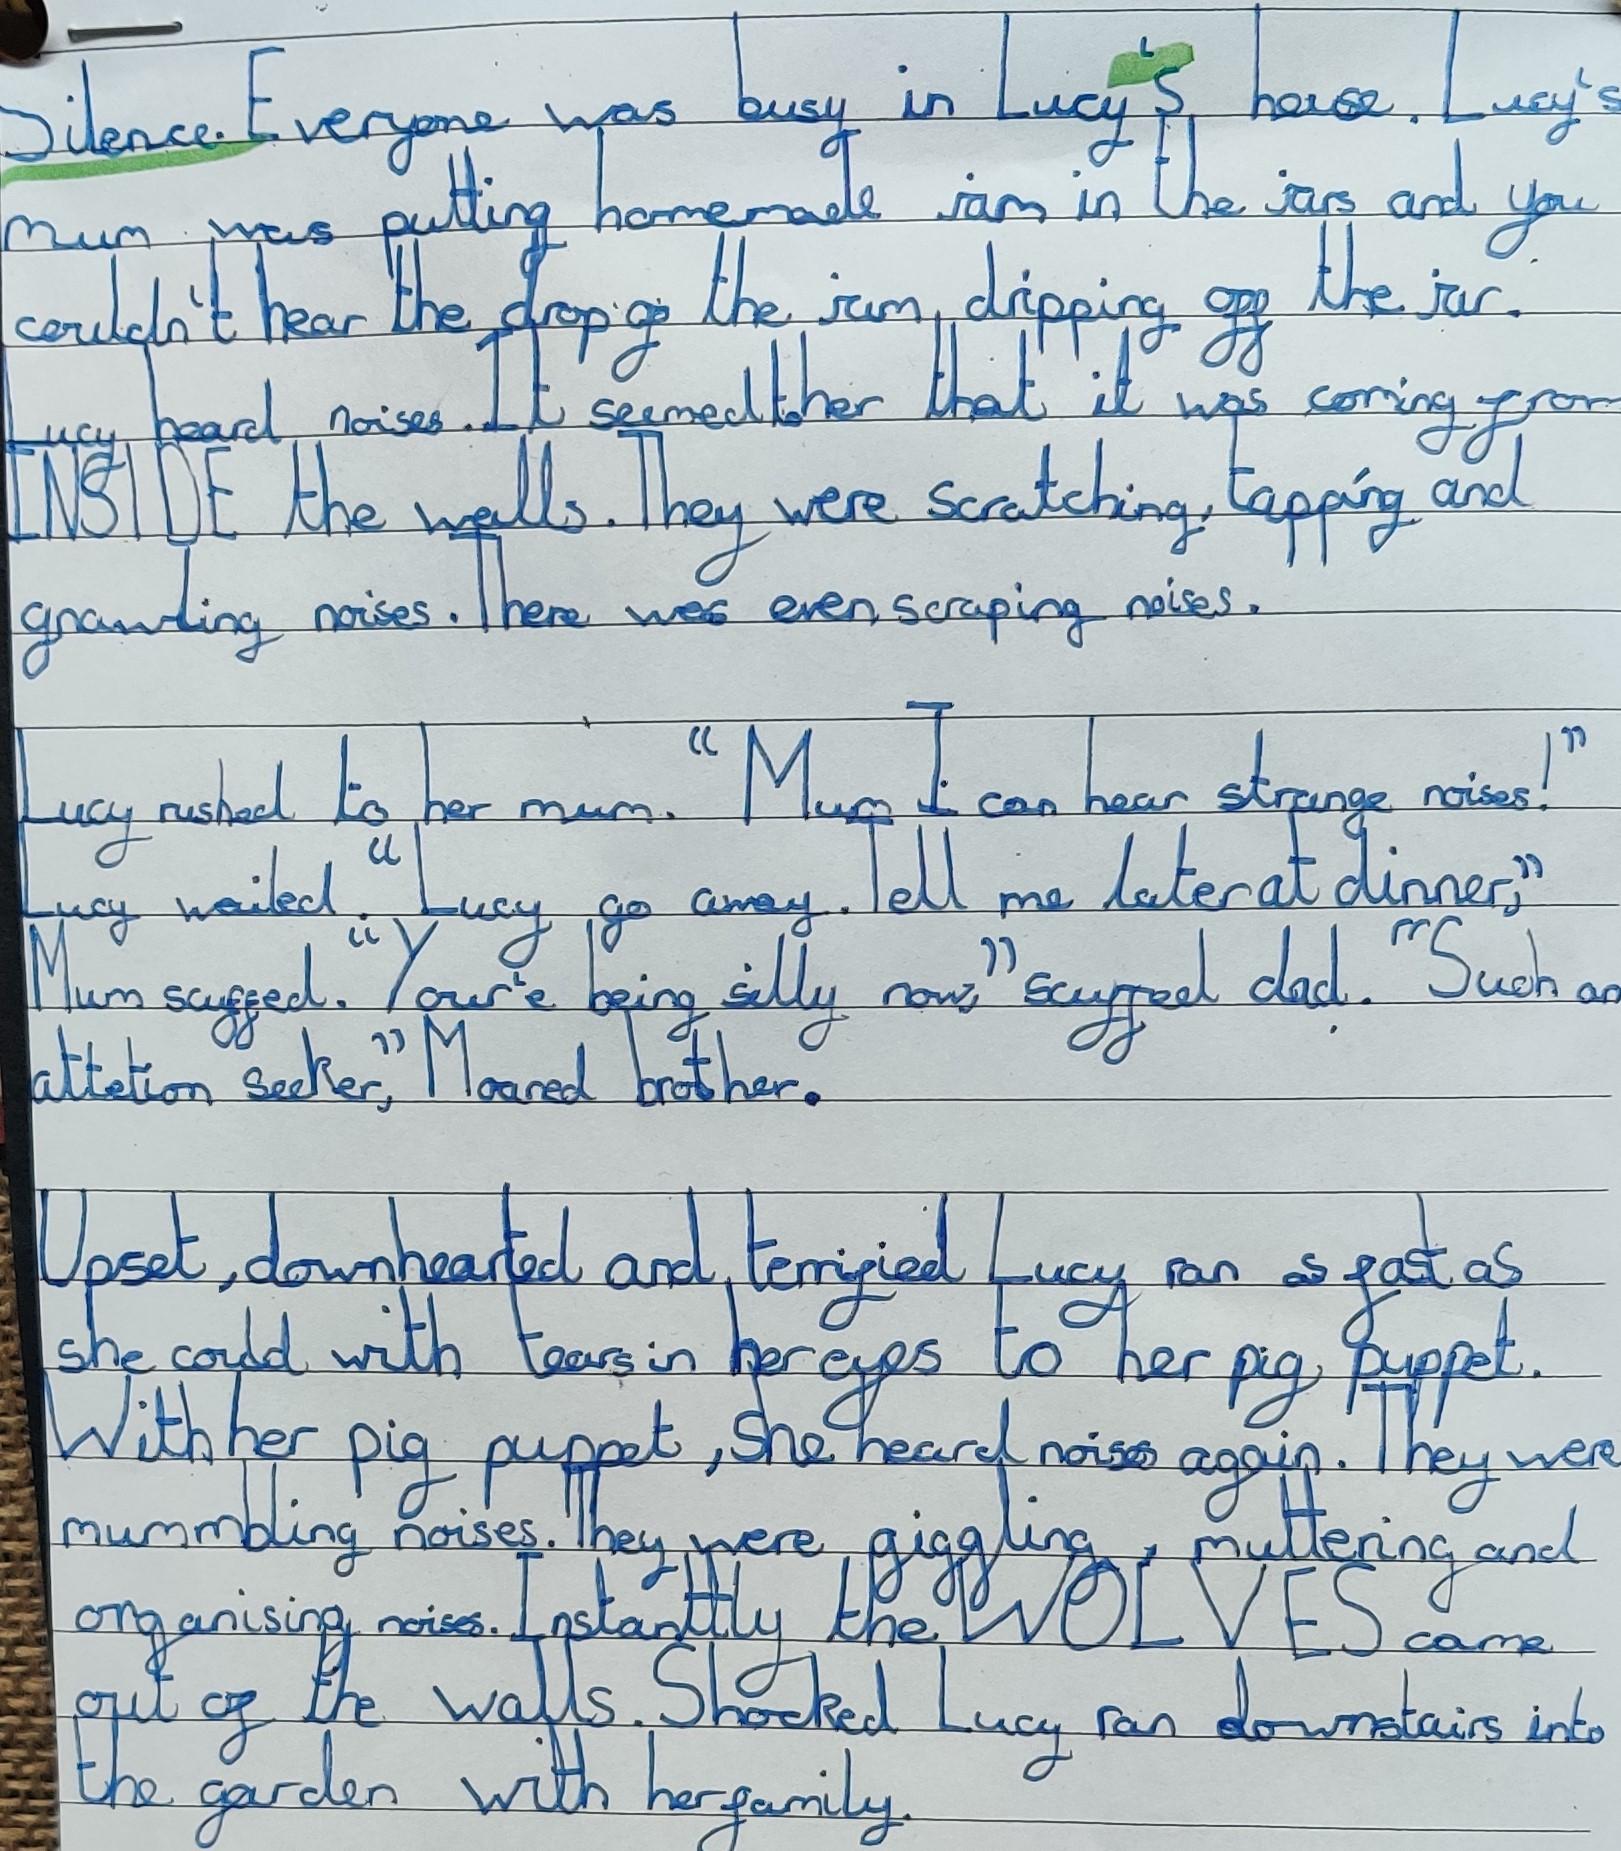 Silence. Everyone was busy in Lucy's house. Lucy's
mum was putting homemade jam in the jars and you
couldn't hear the drop go the jam, dripping off the jar.
Lucy heard noises. It seemed to her that it was coming from
INSIDE the walls. They were scratching, tapping and
gnawling noises. There was even scraping noises.
Lucy rushed to her mum. "Mum I can hear strange noises!"
Lucy wailed. "Lucy go away. Tell me later at dinner,"
Mum scuffed. "Your'e being silly now," scuffed dad. "Such an
attetion seeker," Moaned brother.
Upset, downhearted and, terrified Lucy ran as fast as
she could with tears in her eyes to her pig puppet.
With her pig puppet, She heard noises again. They were
mummbling noises. They were giggling, muttering and
organising noises. Instanttly the WOLVES came
out of the walls. Shocked Lucy ran downstairs into
the garden with her family.